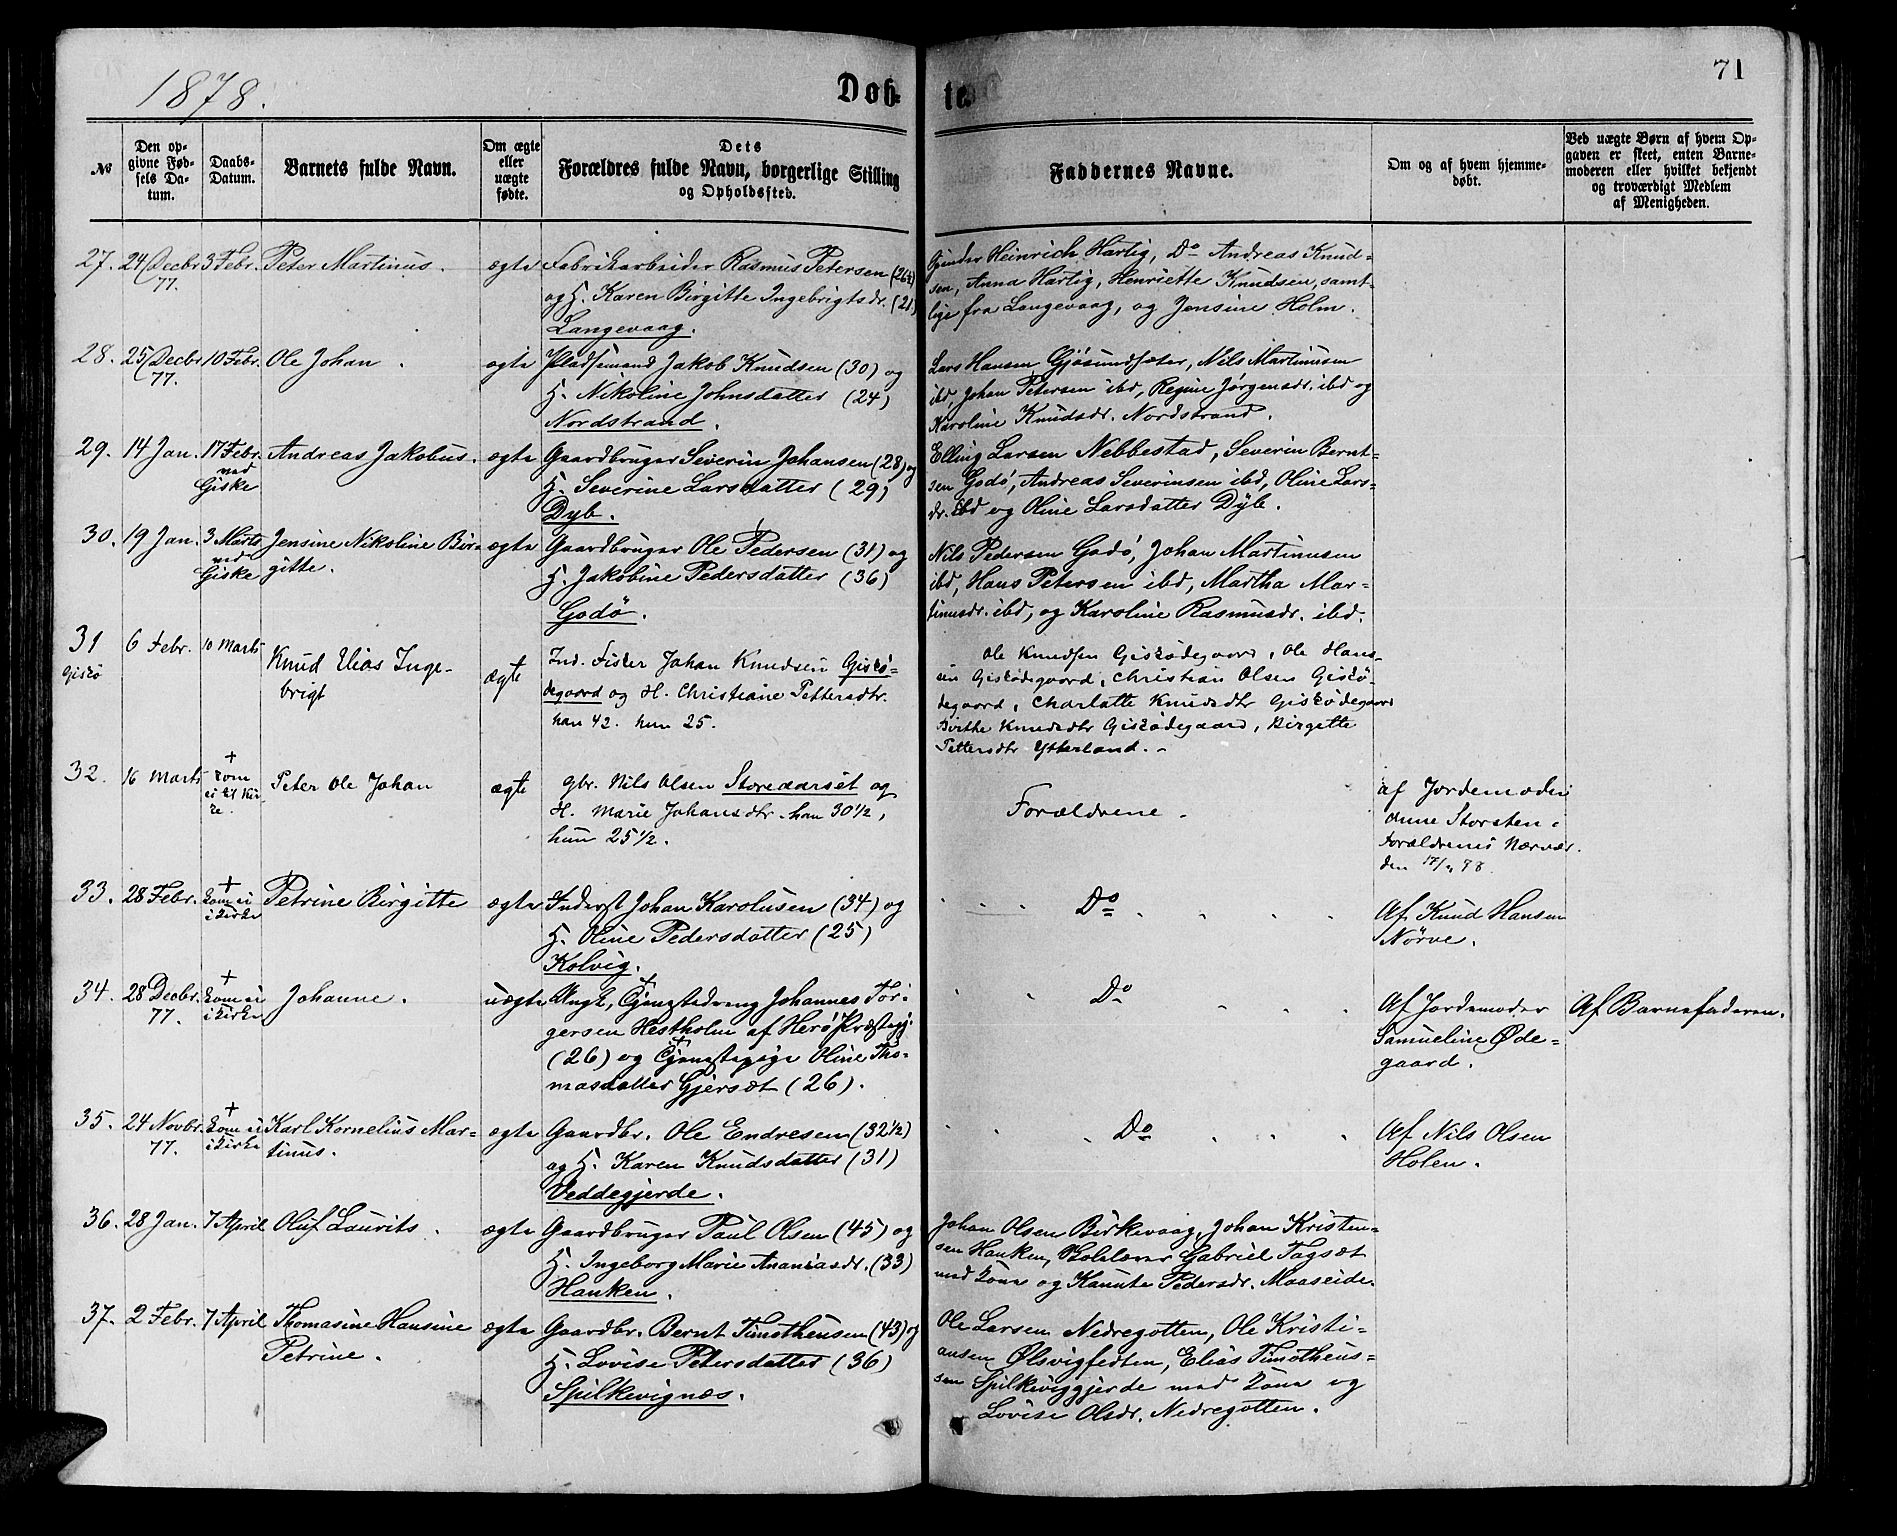 1878.
Døb-
te.
71
No
Den op-
givne Fød-
sels Da-
tum.
Daabs-
Datum.
Barnets fulde Navn.
Om ægte
eller
uægte
fødte.
Dets
Forældres fulde Navn, borgerlige Stilling
og Opholdssted.
Faddernes Navne.
Om og af hvem hjemme-
døbt.
Ved uægte Børn af hvem Op-
gaven er skeet, enten Barne-
moderen eller hvilket bekjendt
og troværdigt Medlem
af Menigheden.
27. 24 Decbr 77. 3 Febr. Peter Martinus. ægte Fabrikarbeider Rasmus Petersen
og H. Karen Birgitte Ingebrigtsdr. (21)
Langevaag.
Heinrich Hartig, Do Andreas Knud-
sen, Anna Hartig, Henriette Knudsen, samt-
lige fra Langevaag, og Jensine Holm.
28. 25 Decbr 77. 10 Febr. Ole Johan. ægte Pladsemand Jakob Knudsen (30) og
H. Nikoline Johnsdatter (24)
Nordstrand.
Lars Hansen Gjøsundsæter, Nils Martinusen
ibd, Johan Petersen ibd, Regine Jørgensdr. ibd og
Karoline Knudsdr. Nordstrand.
29. 14 Jan. 17 Febr. ved Giske Andreas Jakobus. ægte Gaardbruger Severin Johansen (28) og
H. Severine Larsdatter (29)
Dyb.
Elling Larsen Nebbestad, Severin Bernt-
sen Godø, Andreas Severinsen ibd, Oline Lars-
dr. ibd og Oline Larsdatter Dyb.
30. 19 Jan. 3 Marts ved Giske Jensine Nikoline Bir-
gitte. ægte Gaardbruger Ole Pedersen (31) og
H. Jakobine Pedersdatter (36)
Godø.
Nils Pedersen Godø, Johan Martinusen
ibd, Hans Petersen ibd, Martha Mar-
tinusdr. ibd, og Karoline Rasmusdr. ibd.
31 Giskø 6 Febr. 10 Marts Knud Elias Inge-
brigt ægte Ind. Fisker Johan Knudsen Giskø-
degaard og H. Christiane Pettersdtr.
han 42. hun 25.
Ole Knudsen Giskødegaard, Ole Hans-
sen Giskødegaard, Christian Olsen Giskø-
degaard, Charlotte Knudsdtr Giskødegaard
Birthe Knudsdtr Giskødegaard, Birgitte
Pettersdtr Ytterland. -
32. 16 Marts + kom
ei til Kir-
ke. Peter Ole Johan ægte Gbr. Nils Olsen Storeaarset og
H. Marie Johansdtr. han 30 1/2,
hun 25 1/2.
Forældrene.
af Jordemoder
Anne Storsten i
Forældrenes Nærvær.
33. 28 Febr. + kom ei
i Kirke Petrine Birgitte ægte Inderst Johan Karolusen (34) og
H. Oline Pedersdatter (25)
Kolvig.
Do
Af Knud Hansen
Nørve.
34. 28 Decbr. 77. + kom ei
i Kirke Johanne. uægte Ungk. Tjenestedreng Johannes Tor-
gersen Hestholm af Herø Præstegj.
(26) og Tjenestepige Oline Tho-
masdatter Gjersæt (26).
Do
Af Jordemoder
Samueline Øde-
gaard.
Af Barnefaderen.
35. 24 Novbr. 77. + kom ei
i Kirke Karl Kornelius Mar-
tinus. ægte Gaardbr. Ole Endresen (32 1/2)
og H. Karen Knudsdatter (31)
Veddegjerde.
Do
Af Nils Olsen
Holen.
36. 28 Jan. 7 April Oluf Laurits. ægte Gaardbruger Paul Olsen (45) og
H. Ingeborg Marie Ananiasdr. (33)
Hanken.
Johan Olsen Birkevaag, Johan Kristen-
sen Hanken, Skolelærer Gabriel Tagsæt
med Kone og Kanute Pedersdr. Maaseide.
37. 2 Febr. 7 April Thomasine Hansine
Petrine. ægte Gaardbr. Bernt Timotheusen (43) og
H. Lovise Petersdatter (36)
Spilkevignæs.
Ole Larsen Nedregotten, Ole Kristi-
ansen Ølsvigfedten, Elias Timotheus-
sen Spilkeviggjerde med Kone og
Lovise Olsdr. Nedregotten.